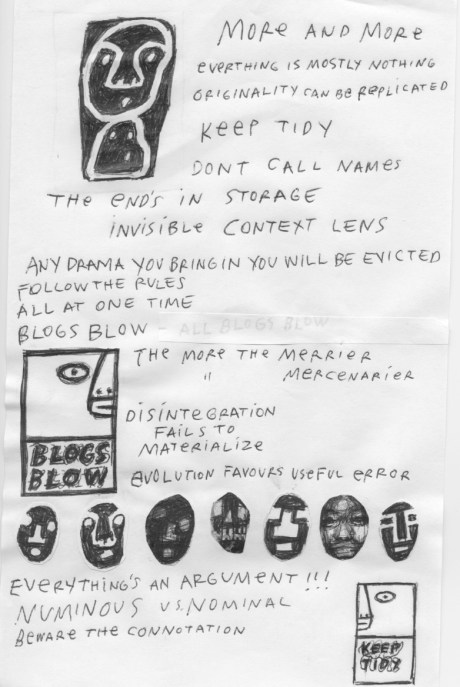 MORE AND MORE
EVERTHING IS MOSTLY NOTHING
ORIGINALITY CAN BE REPLICATED
KEEP TIDY
DONT CALL NAMES
THE END'S IN STORAGE
INVISIBLE CONTEXT LENS
ANY DRAMA YOU BRING IN YOU WILL BE EVICTED
FOLLOW THE RULES
ALL AT ONE TIME
BLOGS BLOW - ALL BLOGS BLOW
THE MORE THE MERRIER
" MERCENARIER
DISINTEGRATION
FAILS TO
MATERIALIZE
BLOGS
BLOW
EVOLUTION FAVOURS USEFUL ERROR
EVERYTHING'S AN ARGUMENT !!!
NUMINOUS VS. NOMINAL
BEWARE THE CONNOTATION
KEEP
TIDY